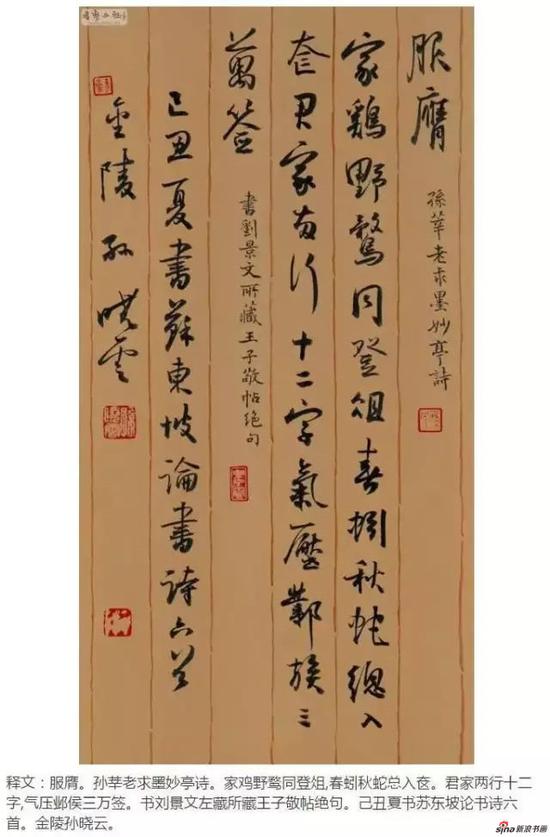 服膺
孫莘老求墨妙亭詩
家鷄野鶩同登俎春蚓秋蛇總入
奁君家兩行十二字氣壓鄴侯三
萬签
書劉景文所藏王子敬帖绝句
己丑夏書蘇東坡論書诗六首
金陵孙曉雲
释文：服膺。孙莘老求墨妙亭诗。家鸡野鹜同登俎,春蚓秋蛇总入奁。君家两行十二
字,气压邺侯三万签。书刘景文左藏所藏王子敬帖绝句。己丑夏书苏东坡论书诗六
首。金陵孙晓云。
sina新浪书画